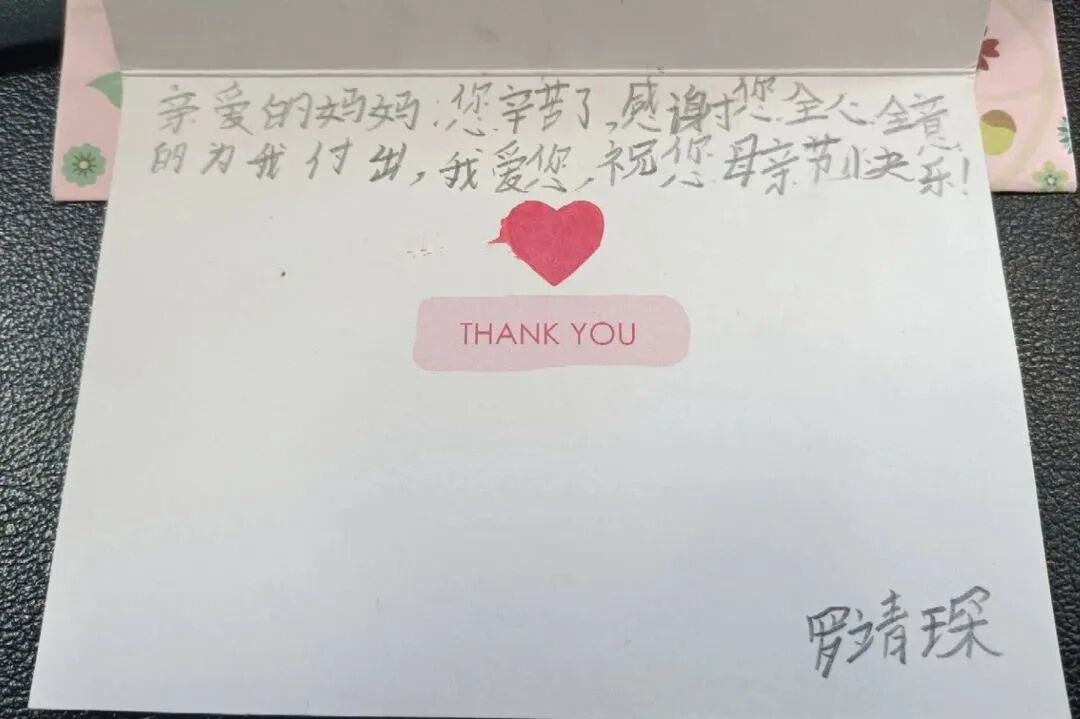 亲爱的妈妈:您辛苦了,感谢您全心全意
的为我付出,我爱您,祝您母亲节快乐!
THANK YOU
罗靖琛